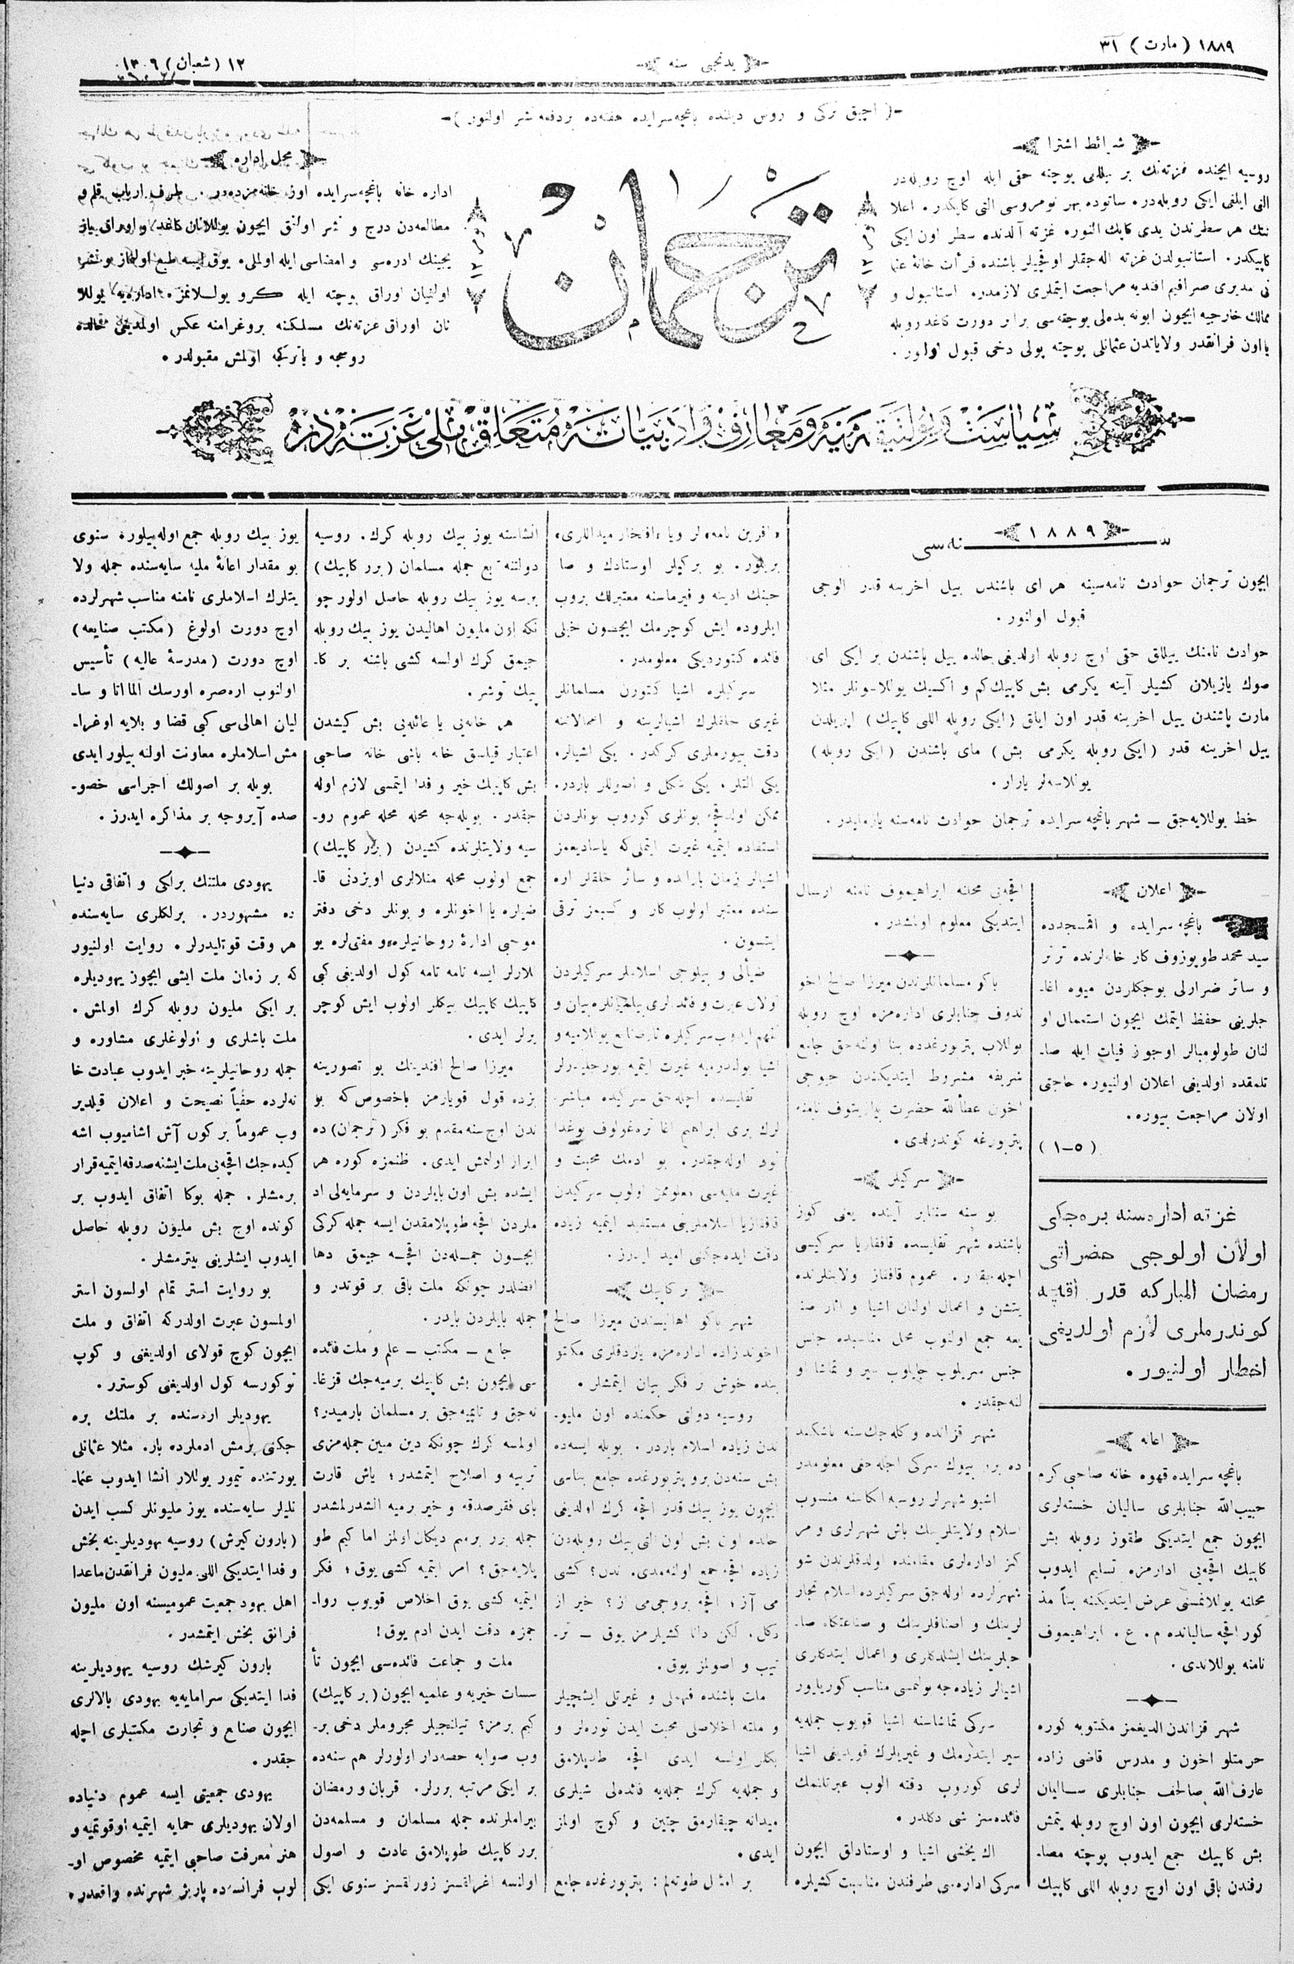 ١٨٨٩ (مارت) ٣١
يدنجی سنه
١٢ (شعبان) ١٣٠٦
(اچیق ترکی و روس دیلنده باغچه‌سرایده هفته‌ده بر دفعه نشر اولنور)
شرائط اشترا
روسیه ایچنده غزته‌نك بر ییللغی پوچته حقی ایله اوچ روبله‌در
التی ایلغی ایکی روبله‌در. ساتوده بهر نومروسی التی کاپکدر. اعلا
ننك هر سطرندن یدی کاپك النور. غزته آلدنده سطر اون ایکی
کاپیکدر. استانبولدن غزته اله‌جقلر اوقجیلر باشنده قرأت خانهٔ عثما
نی مدیری صرافیم افندیه مراجعت ایتملری لازمدر. استانبول و
ممالك خارجیه ایچون ابونه بدلی پوچته سی برابر دورت کاغد روبله
یا اون فرانقدر ولایاتدن عثمانلی پوچته پولی دخی قبول اولور.
ترجمان
محل اداره
اداره خانه باغچه‌سرایده اوز خانه‌مزده‌در. طرف ارباب قلم و
مطالعه‌دن درج و نشر اولنق ایچون یوللانان کاغد و اوراق یاز
یجینك ادره‌سی و امضاسی ایله اولملی. یوق ایسه طبع اولنماز و نشر
اولنیان اوراق پوچته ایله کرو یوللانمز. اداره‌یه یوللا
نان اوراق غزته‌نك مسلکنه پروغرامنه عکس اولمدیغی حالده
روسجه و یا ترکجه اولمش مقبولدر.
سیاست و پولتیقه‌یه و معارف و ادبیاته متعلق ملی غزته‌در
١٨٨٩
سنه‌سی
ایچون ترجمان حوادث نامه‌سینه هر ای باشندن ییل اخرینه قدر الوجی
قبول اولنور.
حوادث نامه‌نك ییللق حقی اوچ روبله اولدیغی حالده ییل باشندن بر ایکی ای
صوك یازیلان کشیلر آینه یکرمی بش کاپیك کم و اکسیك یوللاسونلر مثلا
مارت باشندن ییل اخرینه قدر اون ایلق (ایکی روبله اللی کاپیك) اپریلدن
ییل اخرینه قدر (ایکی روبله یکرمی بش) مای باشندن (ایکی روبله)
یوللاسه‌لر یارار.
خط یوللایه‌جق — شهر باغچه سرایده ترجمان حوادث نامه‌سنه یازملیدر.
اعلان
باغچه سرایده و اقمسجدده
سید محمد طوپوزوف کار خانه‌لرنده ترتر
و سائر ضرارلی بوجکلردن میوه اغا-
جلرینی حفظ ایتمك ایچون استعمال او
لنان طولومبالر اوجوز فیات ایله صا-
تلمقده اولدیغی اعلان اولنیور. حاجتی
اولان مراجعت بیوره.
(١-٥)
غزته اداره‌سنه بره‌جکی
اولان اولوجی حضراتی
رمضان المبارکه قدر اقچه
کوندرملری لازم اولدیغی
اخطار اولنیور.
اعانه
باغچه سرایده قهوه خانه صاحبی کرم
حبیب الله جنابلری سالیان خسته‌لری
ایچون جمع ایتدیکی طقوز روبله بش
کاپیك اقچه‌یی ادارمزه تسلیم ایدوب
محلنه یوللانمسنی عرض ایتدیکنه بناً مذ
کور اقچه سالیانده م. ع. ابراهیموف
نامنه یوللاندی.
شهر قزاندن الدیغمز مکتوبه کوره
حرمتلو اخون و مدرس قاضی زاده
عارف الله صالحف جنابلری سالیان
خسته‌لری ایچون اون اوچ روبله یتمش
بش کاپیك جمع ایدوب پوچته مصا-
رفندن باقی اون اوچ روبله اللی کاپیك
اقچه‌یی محلنه ابراهیموف نامنه ارسال
ایتدیکی معلوم اولمشدر.
باکو مسلمانلرندن میرزا صالح اخو
ندوف جنابلری اداره‌مزه اوچ روبله
یوللاب پتربورغده بنا اولنه‌جق جامع
شریفه مشروط ایتدیکندن
اخون عطأ الله حضرت بایازیتوف نامنه
پتربورغه کوندرلدی.
سرکیلر
بو سنه سنتابر آینده یعنی کوز
باشنده شهر تفلیسده قافقازیا سرکیسی
اچله‌جقدر. عموم قافقاز ولایتلرنده
یتشن و اعمال اولنان اشیا و اثار صنا
یعه جمع اولنوب محل مناسبده جنس
جنس سریلوب جیاوب سیر و تماشا او
لنه‌جقدر.
شهر قزانده و کله‌جك سنه تاشکند
ده بر بیوك سرکی اچله‌جغی معلومدر
اشبو شهرلر روسیه اکنا‌سنه منسوب
اسلام ولایتلرینك باش شهرلری و مر
کز اداره‌لری مقامنده اولدقلرندن شو
شهرلرده اوله‌جق سرکیلرده اسلام تجار
لرینك و اصنافلرینك و صنعتکار صا-
حبلرینك ایشلدکلری و اعمال ایتدکلری
اشیالر زیاده‌جه بولنمسی مناسب کوریلور
سرکی تماشاسنه اشیا قویوب جمله‌یه
سیر ایتدرمك و غیریلرك قویدیغی اشیا
لری کوروب دقته الوب عبرتلنمك
فائده‌سز شی دکلدر.
اك یخشی اشیا و اوستادلق ایچون
سرکی اداره‌سی طرفندن مناسبت کشیلره
«افرین نامه» لر ویا «افتخار میداللری»
بریلور. بو برکیلر اوستادك و صا
حبنك ادینه و فیرماسنه معتبرلك بروب
ایلروده ایش کوچرمك ایچون خیلی
فائده کتوردیکی معلومدر.
سرکیلره اشیا کتورن مسلمانلر
غیری خلقلرك اشیالرینه و اعمالاتنه
دقت بیورملری کرکدر. یکی اشیالر،
یکی التلر، یکی شکل و اصوللر باردر.
ممکن اولدقچه بونلری کوروب بونلردن
استفاده ایتمیه غیرت ایتملی‌که یاسادیغمز
اشیالر زمان یاراده و سائر خلقلر اره
سنده معتبر اولوب کار و کسبمز ترقی
ایتسون.
ضیالی و بیلوجی اسلاملر سرکیلردن
اولان عبرت و فائده‌لری بیلمیانلره بیان و
تفهیم ایدوب سرکیلره نار صنایع یوللامیه و
اشیا بولندرمیه غیرت ایتمیه بورجلیدرلر
تفلیسده اچله‌جق سرکیده مباشر-
لرك بری ابراهیم اغا
اوله‌جقدر. بو ادمك محبت و
غیرت ملیه‌سی معلوممز اولوب سرکیدن
قافقازیا اسلاملرینی مستفید ایتمیه زیاده
دقت ایده‌جکنی امید ایدرز.
بر کاپیك
شهر باکو اهالیسندن میرزا صالح
اخوندزاده اداره‌مزه یازدقلری مکتو
بنده خوش بر فکر بیان ایتمشلر.
روسیه دولتی حکمنده اون ملیو-
ندن زیاده اسلام باردر. بویله ایسه‌ده
بش سنه‌دن برو پتربورغده جامع بناسی
ایچون یوز بیك قدر اقچه کرك اولدیغی
حالده اون بش اون التی بیك روبله‌دن
زیاده اقچه جمع اولنه‌مدی. ندن؟ کشی
می آز؟ اقچه بروجی‌می از؟ خیر از
دکل. لکن دانا کشیلرمز یوق — تر-
تیب و اصولز یوق.
ملت باشنده فهملی و غیرتلی ایشچیلر
و ملته اخلاصلی محبت ایدن توره‌لر و
بکلر اولسه ایدی اقچه طوپلامق
و جمله‌یه کرك جمله‌یه فائده‌لی شیلری
میدانه چیقارمق چتین و کوچ اولمز
ایدی.
بر امثل طوتملم: پتربورغده جامع
انشاسنه یوز بیك روبله کرك. روسیه
دولتنه تابع جمله مسلمان (برر کاپیك)
برسه یوز بیك روبله حاصل اولور چو
نکه اون ملیون اهالیدن یوز بیك روبله
جیمق کرك اولسه کشی باشنه بر کا-
پیك توشر.
هر خانه‌یی یا عائله‌یی بش کیشدن
اعتبار قیلسق خانه باشی خانه صاحبی
بش کاپیك خیر و فدا ایتمسی لازم اوله
جقدر. بویله‌جه محله محله عموم رو-
سیه ولایتلرنده کشیدن (برر کاپیك)
جمع اولوب محله منلالری اویزدنی قا-
ضیلره یا اخونلره و بونلر دخی دفتر
موجبی ادارهٔ روحانیلره و مفتی‌لره یو
للارلر ایسه نامه نامه کول اولدیغی کبی
کاپیك کاپیك بیکلر اولوب ایش کوچر
یرلر ایدی.
میرزا صالح افندینك بو تصورینه
بزده قول قویارمز باخصوص که بو
ندن اوچ سنه مقدم بو فکر (ترجمان) ده
ابراز اولنمش ایدی. ظنمزه کوره هر
ایشده بش اون بایلردن و سرمایه‌لی اد
ملردن اقچه طوپلامقدن ایسه جمله کرکی
ایچون جمله‌دن اقچه جیمق دها
افضلدر چونکه ملت باقی بر قوتدر و
جمله بایلردن بایدر.
جامع — مکتب — علم و ملت فائده
سی ایچون بش کاپیك برمیه‌جك قزغا-
نه‌جق و تاپمیه‌جق بر مسلمان بارمیدر؟
اولمسه کرك چونکه دین مبین جمله‌مزی
تربیه و اصلاح ایتمشدر؛ یاش قارت
بای فقر صدقه و خیر برمیه الشدرلمشدر
جمله برر برمیم دیکان اولنمز اما کیم طو
پلایه‌جق؟ امر ایتمیه کشی یوق؛ فکر
ایتمیه کشی یوق اخلاص قویوب روا-
جمزه دقت ایدن ادم یوق!
ملت و جماعت فائده‌سی ایچون تأ
سسات خیریه و علمیه ایچون (بر کاپیك)
کیم برمز؟ تیلنجیلر مجروملر دخی بر-
وب صوابه حصه‌دار اولورلر هم سنه‌ده
بر ایکی مرتبه بررلر. قربان و رمضان
بیراملرنده جمله مسلمان و مسلمه‌دن
برر کاپیك طوپلامق عادت و اصول
اولنسه اغراقسز زورلقسز سنوی ایکی
یوز بیك روبله جمع اوله‌بیلور. سنوی
بو مقدار اعانهٔ ملیه سایه‌سنده جمله ولا
یتلرك اسلاملری نامنه مناسب شهرلرده
اوچ دورت اولوغ (مکتب صنایعه)
اوچ دورت (مدرسهٔ عالیه) تأسیس
اولنوب اره‌صره اورسك الماتا و سا-
لیان اهالی‌سی کبی قضا و بلایه اوغرا-
مش اسلاملره معاونت اولنه بیلور ایدی
بویله بر اصولك اجراسی خصو-
صده آیروجه بر مذاکره ایدرز.
یهودی ملتنك برلکی و اتفاقی دنیا
ده مشهوردر. برلکلری سایه‌سنده
هر وقت قوتلیدرلر. روایت اولنیور
که بر زمان ملت ایشی ایچون یهودیلره
بر ایکی ملیون روبله کرك اولمش.
ملت باشلری و اولوغلری مشاوره و
جمله روحانیلرینه خبر ایدوب عبادت خا
نه‌لرده حفیاً نصیحت و اعلان قیلدیر
وب عموماً بر کون آش اشامیوب اشه
کیده‌جك اقچه‌یی ملت ایشنه صدقه ایتمیه قرار
برمشلر. جمله بوکا اتفاق ایدوب بر
کونده اوچ بش ملیون روبله حاصل
ایدوب ایشلرینی بیترمشلر.
بو روایت استر تمام اولسون استر
اولمسون عبرت اولدرکه اتفاق و ملت
ایچون کوچ قولای اولدیغنی و کوپ
توکورسه کول اولدیغنی کوسترر.
یهودیلر اره‌سنده بر ملتك بره
جکنی برمش ادملرده بار. مثلا عثمانلی
یورتنده تیمور یوللار انشا ایدوب عثما-
نلیلر سایه‌سنده یوز ملیونلر کسب ایدن
(بارون کیرش) روسیه یهودیلرینه بخش
و فدا ایتدیکی اللی ملیون فرانقدن ماعدا
اهل یهود جمعیت عمومیسنه اون ملیون
فرانق بخش ایتمشدر.
بارون کیرشك روسیه یهودیلرینه
فدا ایتدیکی سرمایه‌یه یهودی بالالری
ایچون صنایع و تجارت مکتبلری اچله
جقدر.
یهودی جمعیتی ایسه عموم دنیاده
اولان یهودیلری حمایه ایتمیه اوقوتمیه و
هنر معرفت صاحبی ایتمیه مخصوص او-
لوب فرانسه‌ده پاریز شهرنده واقعدر.